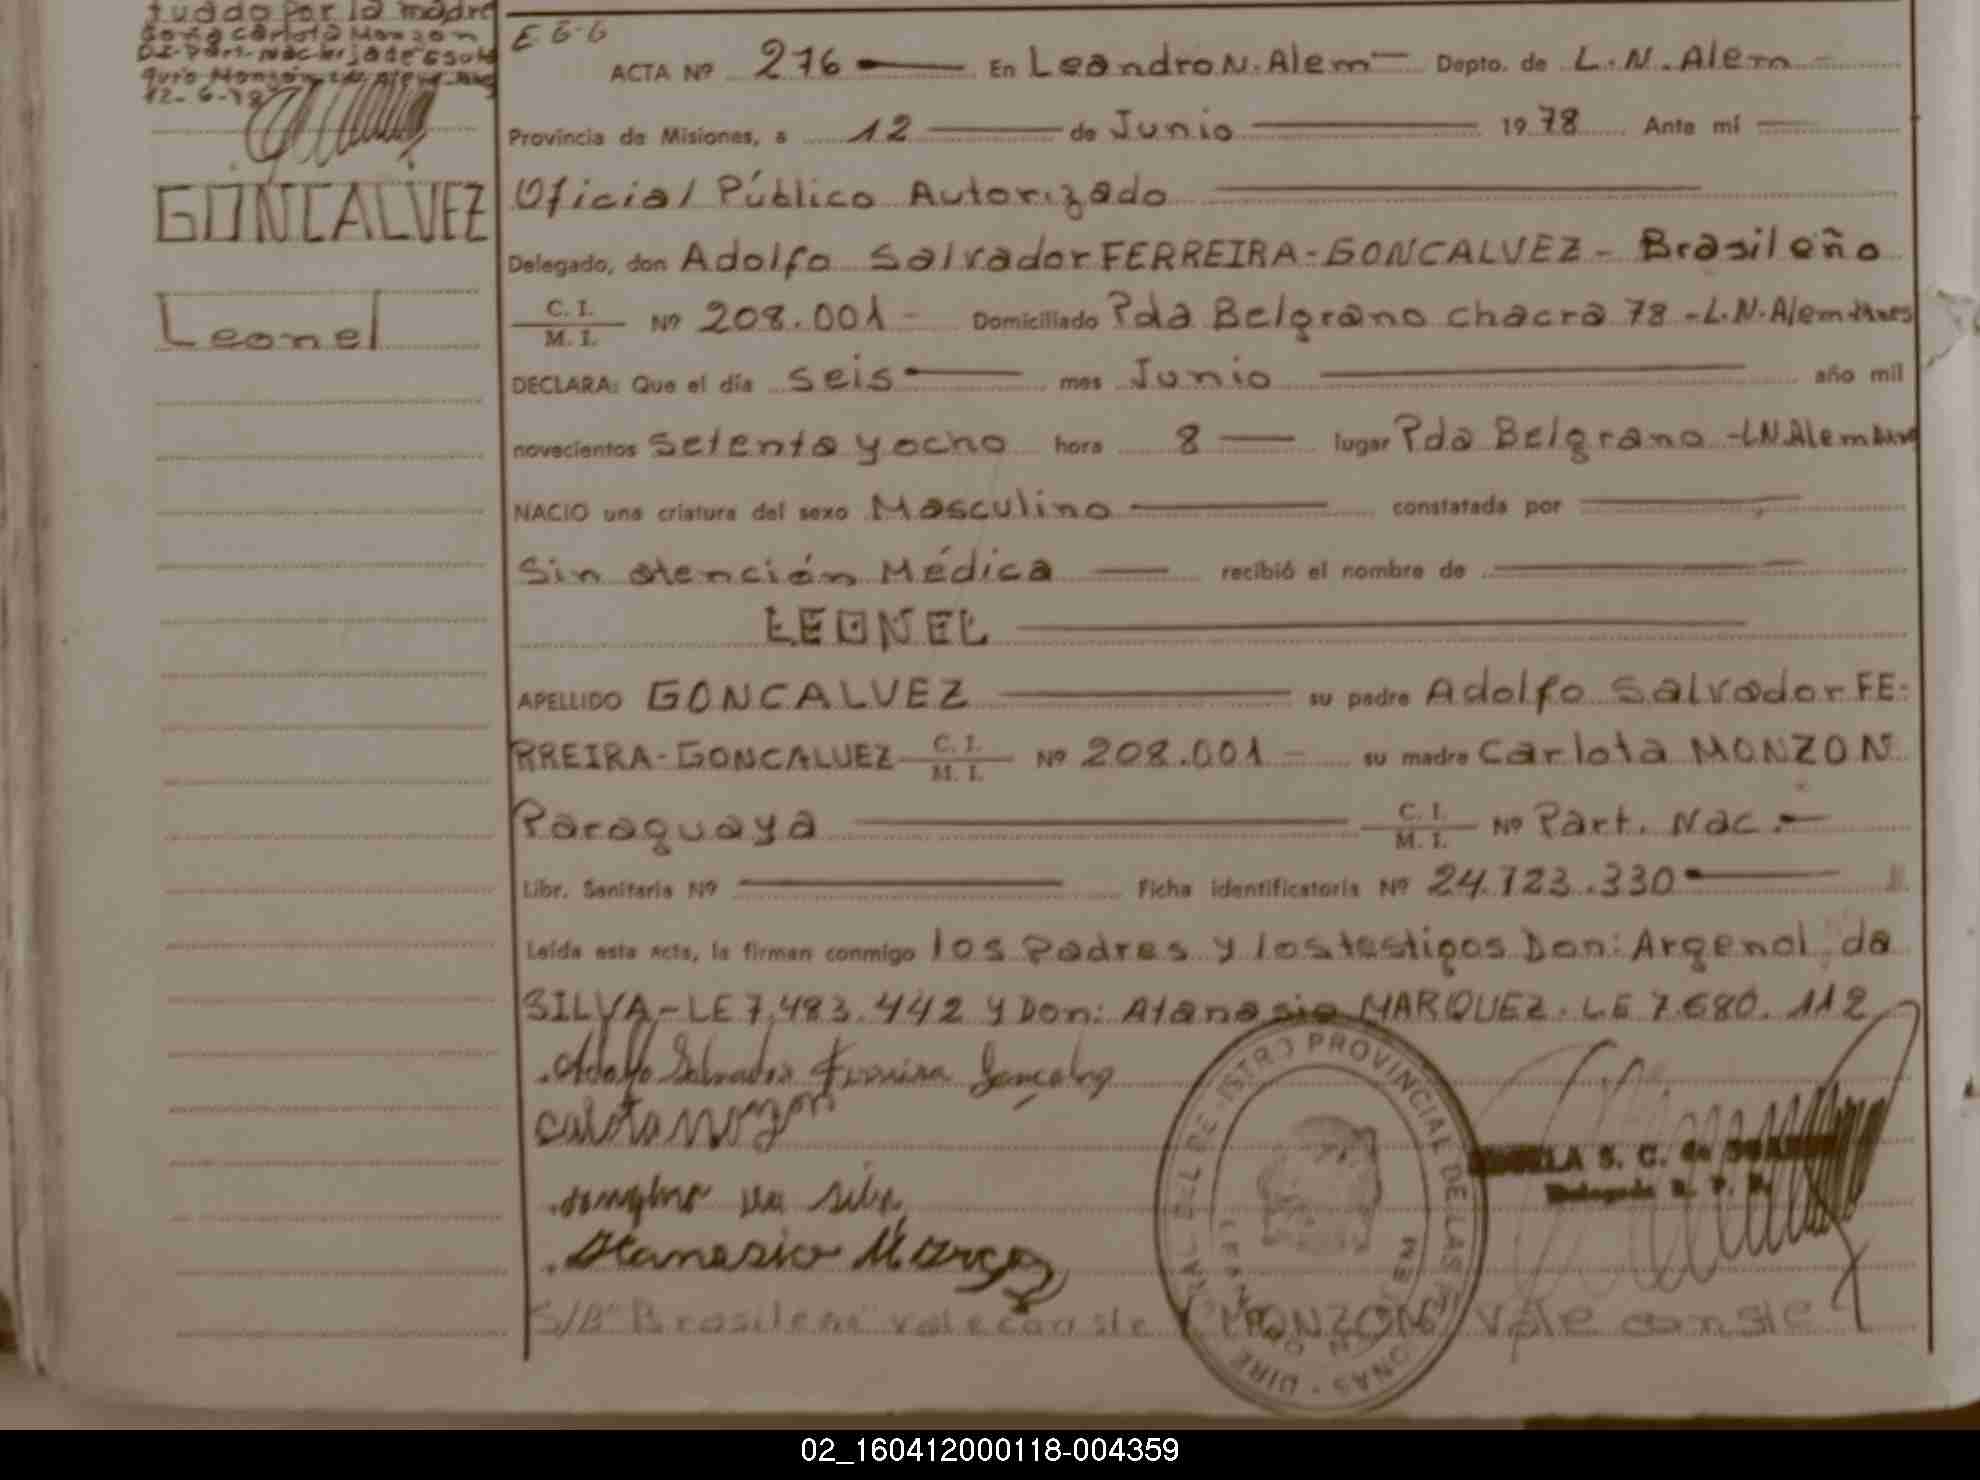 tuado por la madre
Doña Carlota Monzon
12-6-78
GONCALVEZ
Leonel
E 6-6
ACTA Nº 276 En Leandro N. Alem Depto. de L. N. Alem
Provincia de Misiones, a 12 de Junio 1978 Ante mí
Oficial Público Autorizado
Delegado, don Adolfo Salvador FERREIRA-GONCALVEZ - Brasileño
C. I. / M. I. Nº 208.001 - Domiciliado Pda Belgrano chacra 78 - L.N. Alem
DECLARA: Que el día seis mes Junio año mil
novecientos setenta y ocho hora 8 lugar Pda Belgrano - L.N. Alem
NACIO una criatura del sexo Masculino constatada por
Sin atención Médica recibió el nombre de
LEONEL
APELLIDO GONCALVEZ su padre Adolfo Salvador FE-
RREIRA-GONCALVEZ C. I. / M. I. Nº 208.001 - su madre Carlota MONZON
Paraguaya C. I. / M. I. Nº Part. Nac.
Libr. Sanitaria Nº Ficha identificatoria Nº 24.723.330
Leída esta acta, la firman conmigo los Padres y los testigos Don: Argenol da
SILVA - LE 7.483.442 y Don: Atanasio MARQUEZ. LE 7.680.112
Adolfo Salvador Ferreira Gonçalvez
Calota Monzon
da silva
Atanasio
REGISTRO PROVINCIAL DE LAS PERSONAS
S. C. de
Delegada R. P. P.
S/B "Brasileño" vale conste MONZON vale conste
02_160412000118-004359